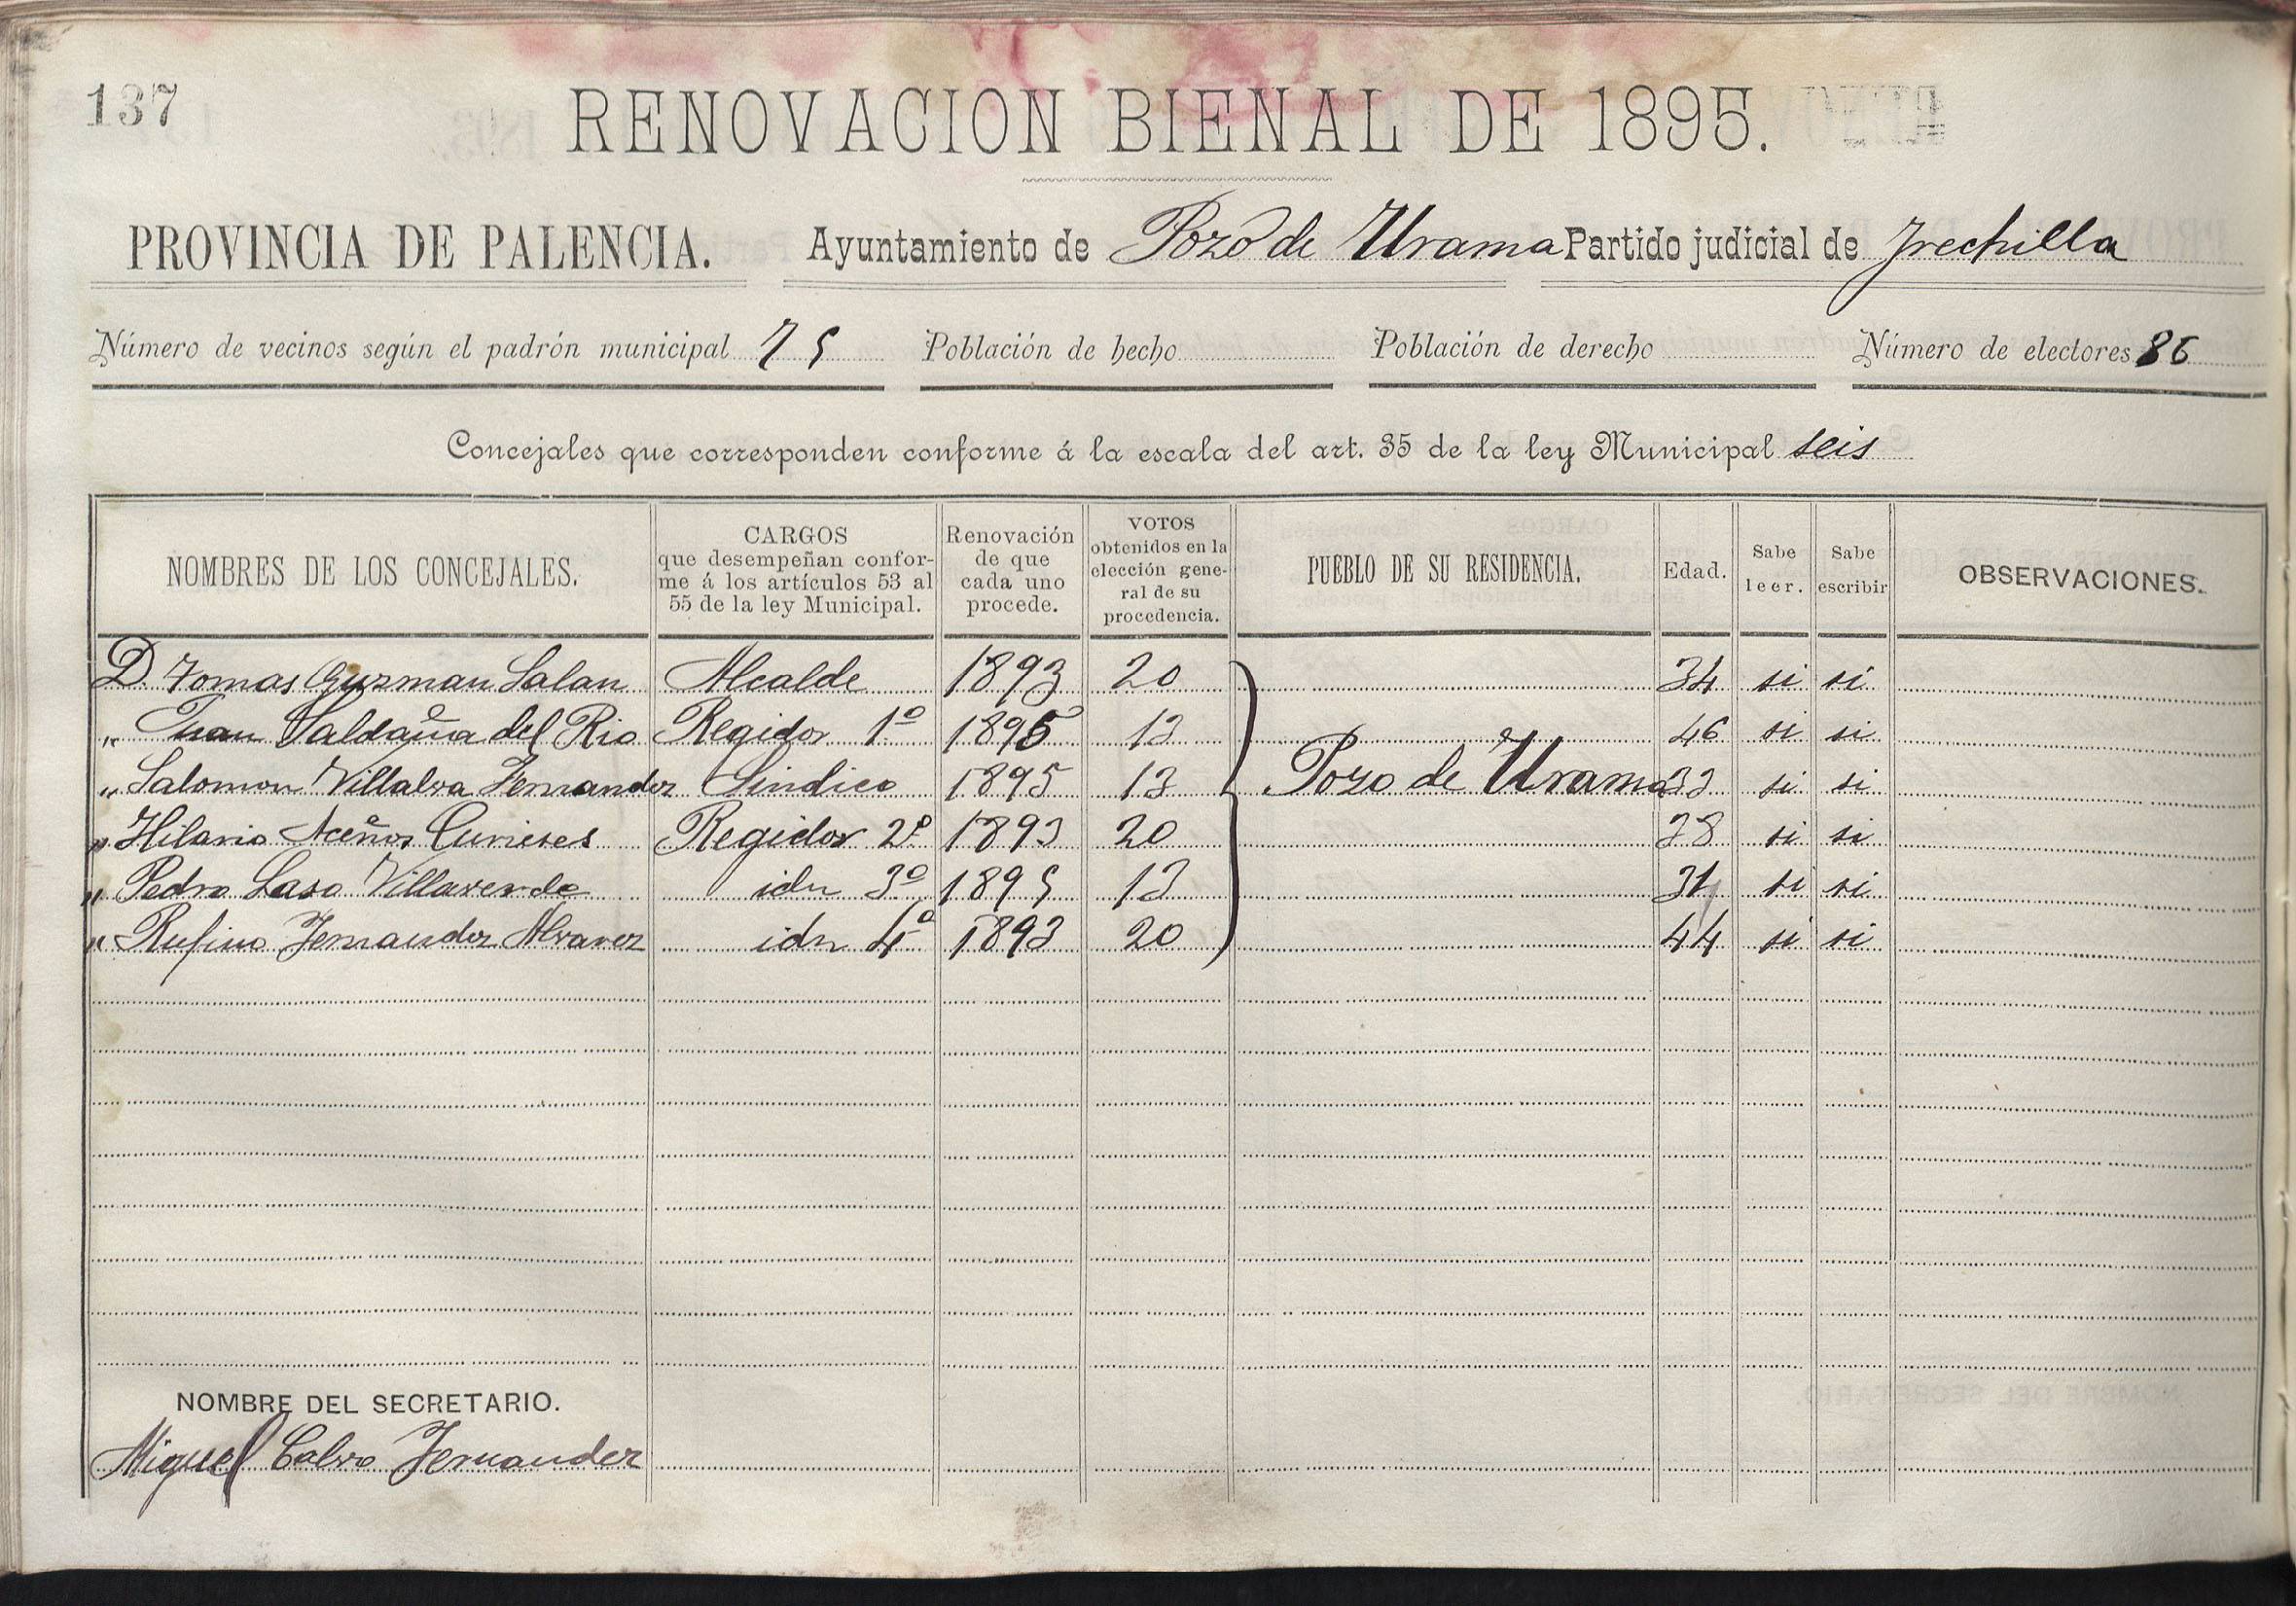 137
RENOVACION BIENAL DE 1895.
PROVINCIA DE PALENCIA. Ayuntamiento de Pozo de Urama Partido judicial de Frechilla
Número de vecinos según el padrón municipal 75 Población de hecho Población de derecho Número de electores 86
Concejales que corresponden conforme á la escala del art. 35 de la ley Municipal seis
NOMBRES DE LOS CONCEJALES. CARGOS que desempeñan conforme á los artículos 53 al 55 de la ley Municipal. Renovación de que cada uno procede. VOTOS obtenidos en la elección general de su procedencia. PUEBLO DE SU RESIDENCIA. Edad. Sabe leer. Sabe escribir OBSERVACIONES.
D. Tomas Guzman Salan Alcalde 1893 20 34 si si
" Juan Saldaña del Rio Regidor 1º 1895 13 46 si si
" Salomon Villalva Fernandez Sindico 1895 13 Pozo de Urama 33 si si
" Hilario Aceños Regidor 2º 1893 20 38 si si
" Pedro Laso Villaverde idn 3º 1895 13 34 si si
" Rufino Fernandez Alvarez idn 4º 1893 20 44 si si
NOMBRE DEL SECRETARIO.
Miguel Calvo Fernandez